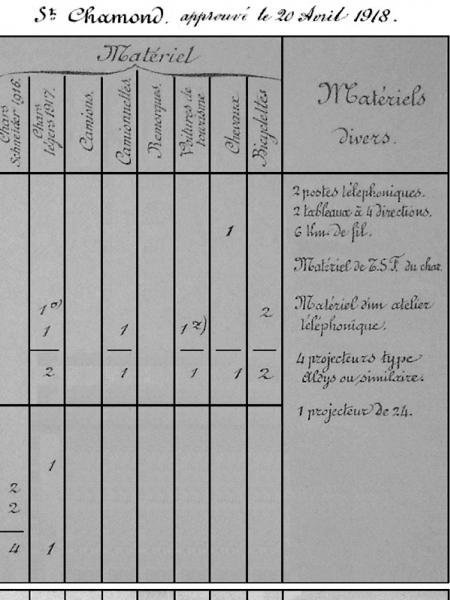 St Chamond. approuvé le 20 Avril 1918.
Matériel
Chars Schneider 1916.
Chars légers 1917.
Camions.
Camionnettes.
Remorques.
Voitures de tourisme
Chevaux
Bicyclettes
Matériels
divers.
2 postes télephoniques.
2 tableaux à 4 directions.
6 Km. de fil.
1
Matériel de T.S.F. du char.
1 a)
2
Matériel d'un atelier
1 1 1 z)
téléphonique.
2 1 1 1 2
4 projecteurs type
Aldys ou similaire.
1 projecteur de 24.
1
2
2
4 1